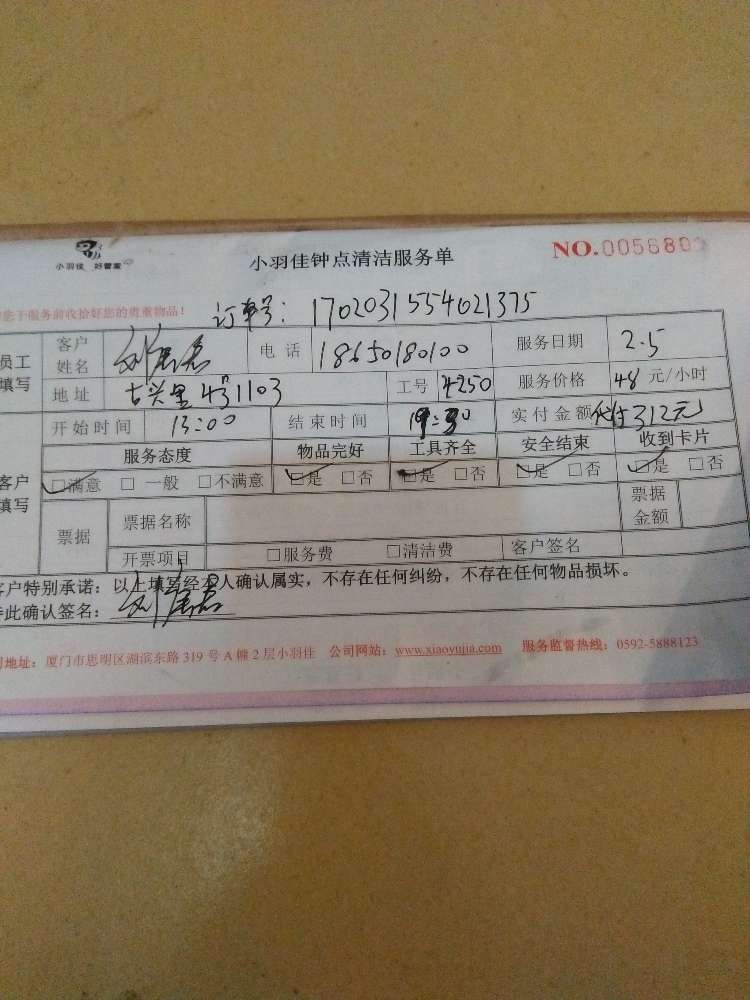 小羽佳 好管家
小羽佳钟点清洁服务单
NO.005680
您于服务前收拾好您的贵重物品！
订单号：1702031554021375
员工填写
客户姓名 刘 电话 18650180100 服务日期 2.5
地址 古兴里4号1103 工号 4250 服务价格 48 元/小时
开始时间 13:00 结束时间 19:30 实付金额 代付312元
客户填写
服务态度 物品完好 工具齐全 安全结束 收到卡片
□满意 □一般 □不满意 □是 □否 □是 □否 □是 □否 □是 □否
票据 票据名称 票据金额
开票项目 □服务费 □清洁费 客户签名
客户特别承诺：以上填写经本人确认属实，不存在任何纠纷，不存在任何物品损坏。
特此确认签名：刘
地址：厦门市思明区湖滨东路319号A幢2层小羽佳 公司网站：www.xiaoyujia.com 服务监督热线：0592-5888123